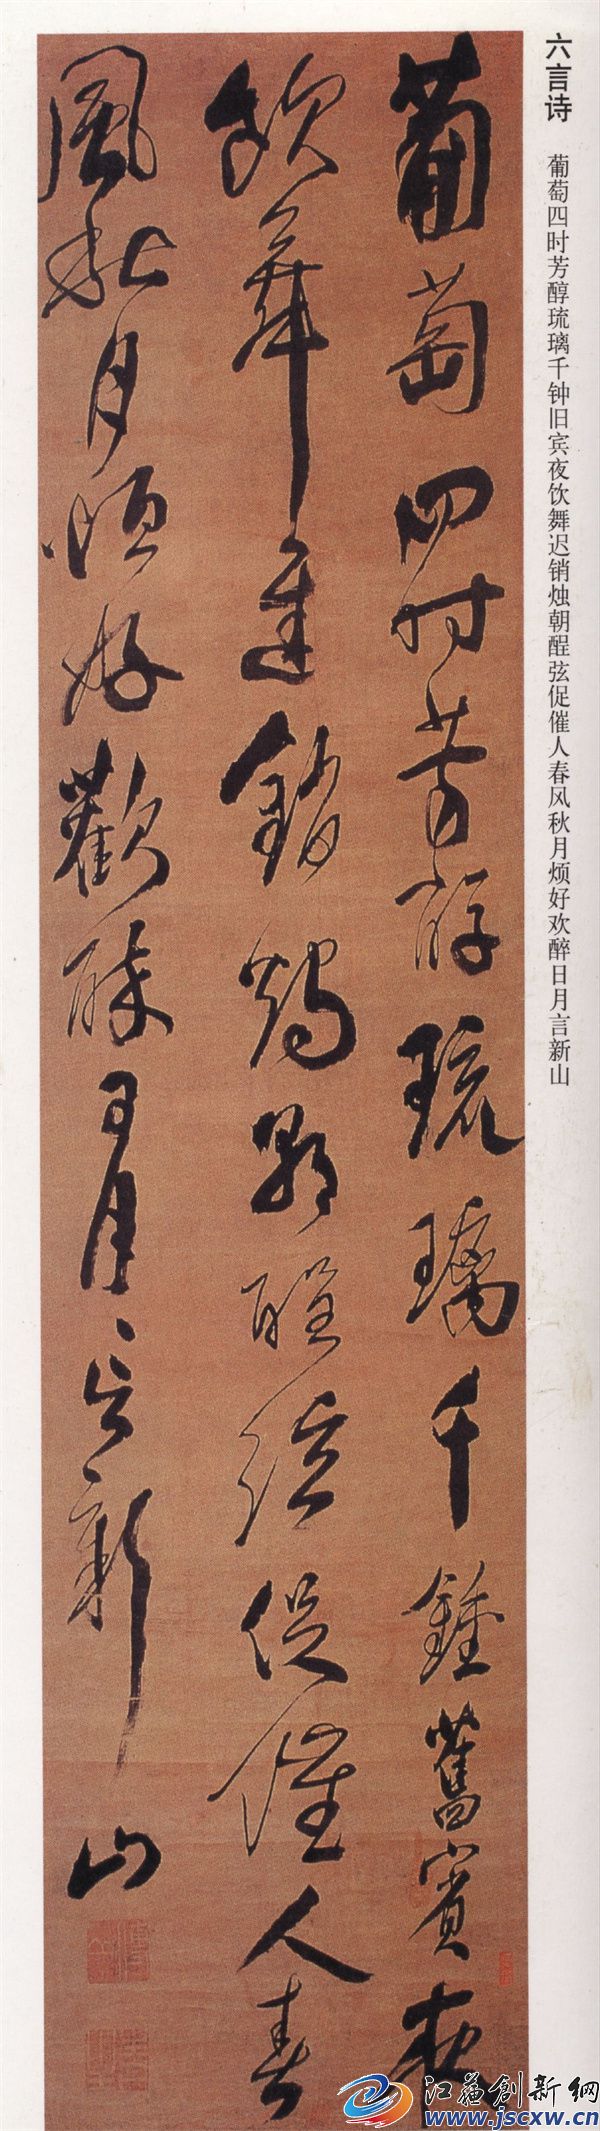 六言诗 葡萄四时芳醇琉璃千钟旧宾夜饮舞迟销烛朝酲弦促催人春风秋月烦好欢醉日月言新山
葡萄四時芳醇琉璃千鍾舊賓夜
飲舞遲銷燭朝酲弦促催人春
風秋月恒好歡醉日月言新山
江苏创新网
www.jscxw.cn